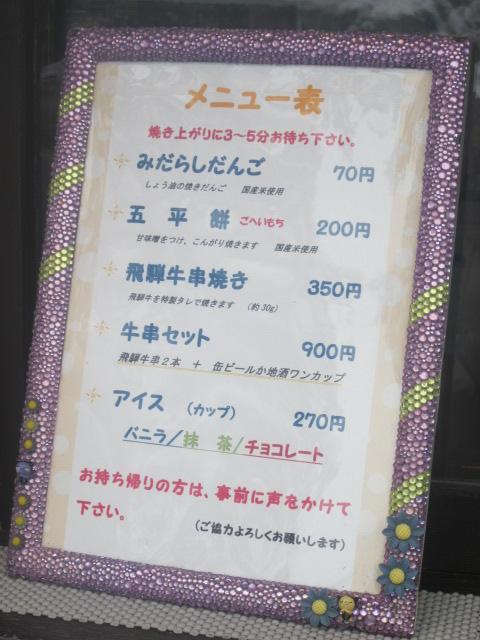 メニュー表
焼き上がりに3～5分お待ち下さい。
みだらしだんご 70円
しょう油の焼きだんご 国産米使用
五平餅 ごへいもち 200円
甘味噌をつけ、こんがり焼きます 国産米使用
飛騨牛串焼き 350円
飛騨牛を特製タレで焼きます (約30g)
牛串セット 900円
飛騨牛串2本 + 缶ビールか地酒ワンカップ
アイス (カップ) 270円
バニラ/抹茶/チョコレート
お持ち帰りの方は、事前に声をかけて
下さい。
(ご協力よろしくお願いします)